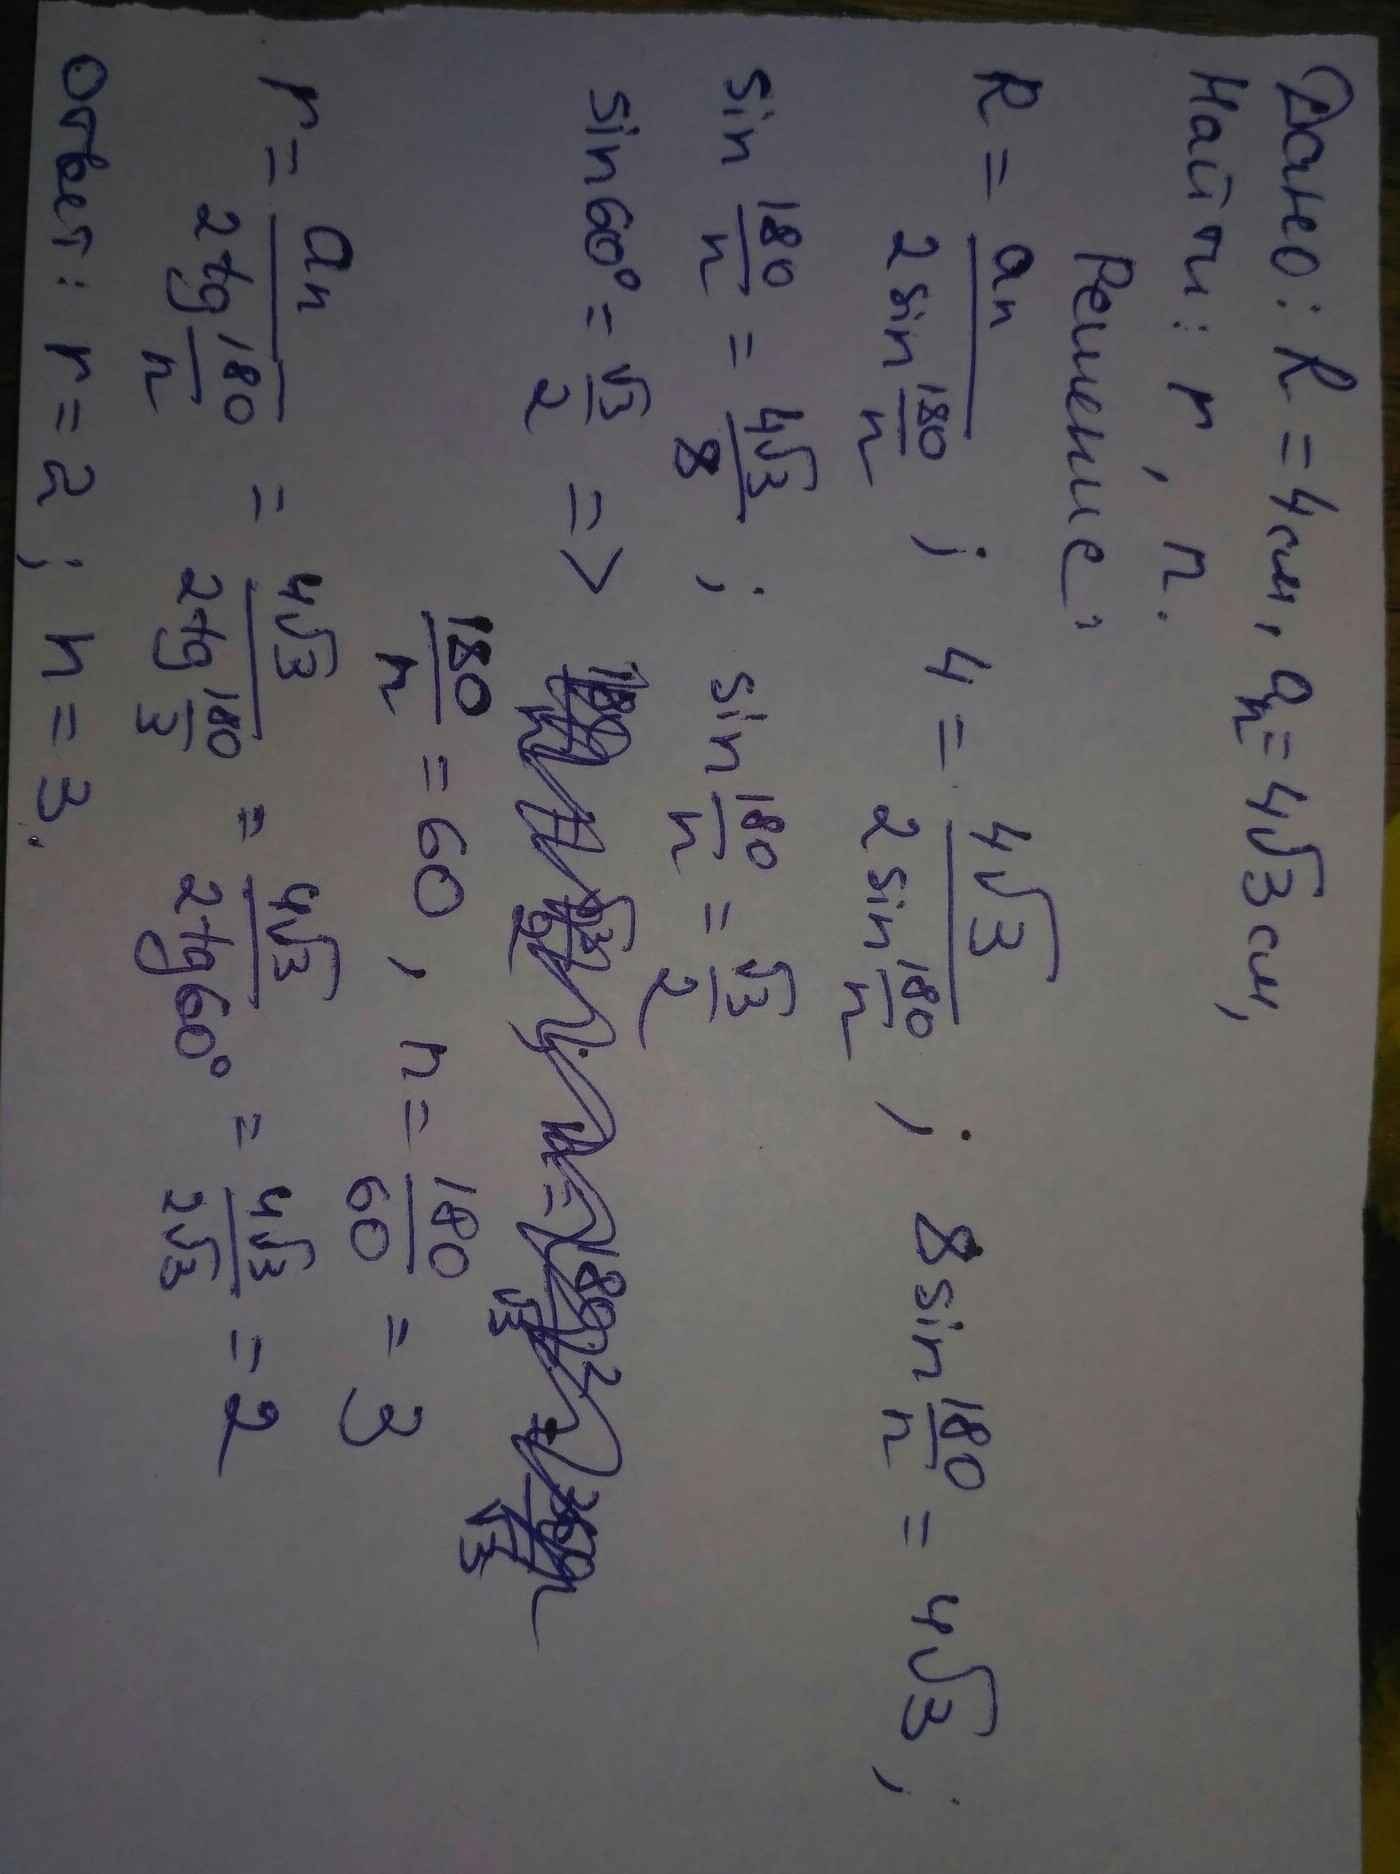 Дано: R = 4 см, aₙ = 4√3 см,
Найти: r, n.
Решение:
R = aₙ / (2 sin 180/n) ; 4 = 4√3 / (2 sin 180/n) ; 8 sin 180/n = 4√3 ;
sin 180/n = 4√3/8 ; sin 180/n = √3/2
sin 60° = √3/2 =>
180/n = 60 , n = 180/60 = 3
r = aₙ / (2 tg 180/n) = 4√3 / (2 tg 180/3) = 4√3 / (2 tg 60°) = 4√3 / 2√3 = 2
Ответ: r = 2 ; n = 3.